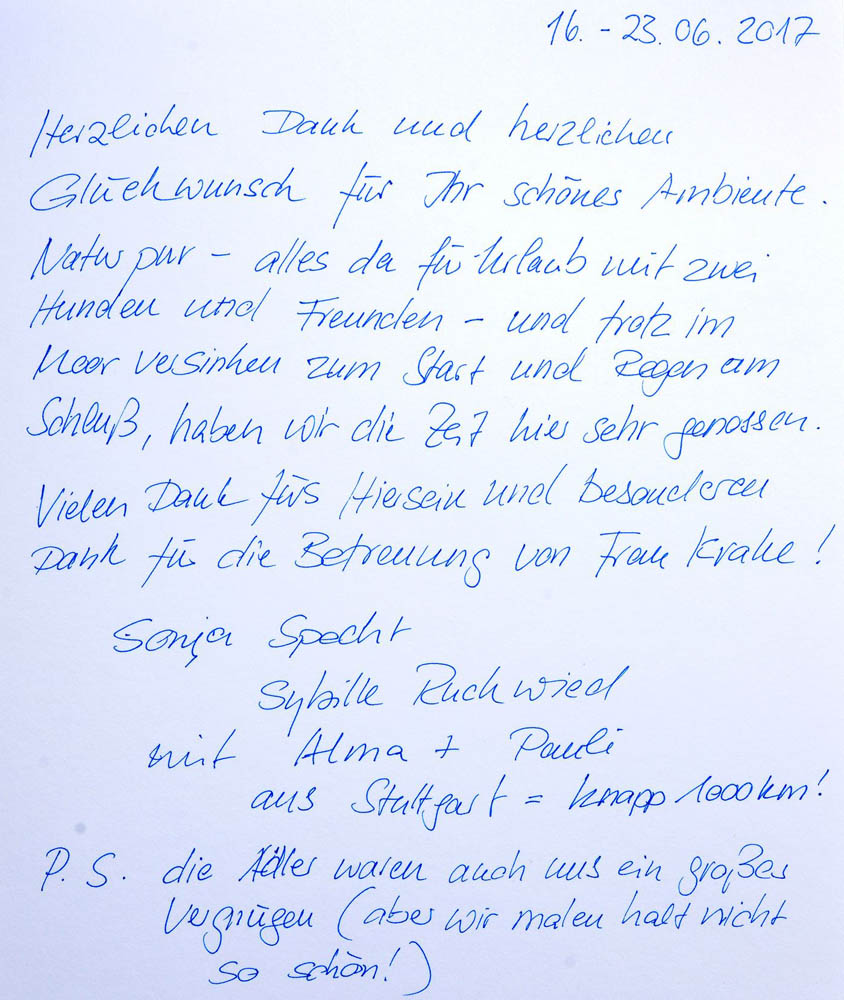 16. - 23.06.2017
Herzlichen Dank und herzlichen
Glückwunsch für Ihr schönes Ambiente.
Natur pur - alles da für Urlaub mit zwei
Hunden und Freunden - und trotz im
Moor versinken zum Start und Regen am
Schluß, haben wir die Zeit hier sehr genossen.
Vielen Dank fürs Hiersein und besonderen
Dank für die Betreuung von Frau Krake!
Sonja Specht
Sybille Ruckwied
mit Alma + Pauli
aus Stuttgart = knapp 1000 km!
P.S. die Adler waren auch uns ein großes
Vergnügen (aber wir malen halt nicht
so schön!)